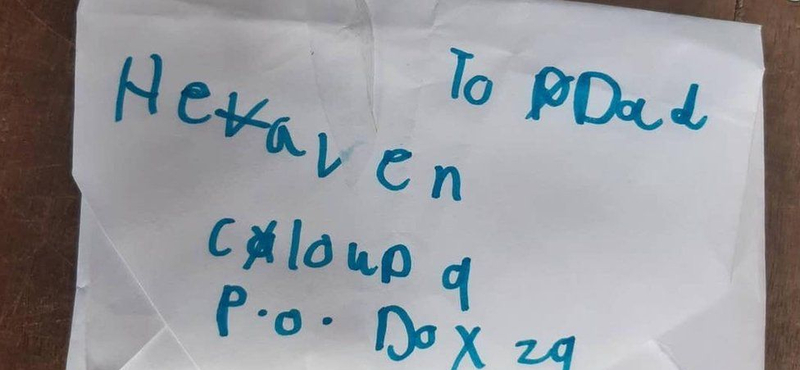 To Dad
Heaven
Cloup 9
P.O. Dox 29